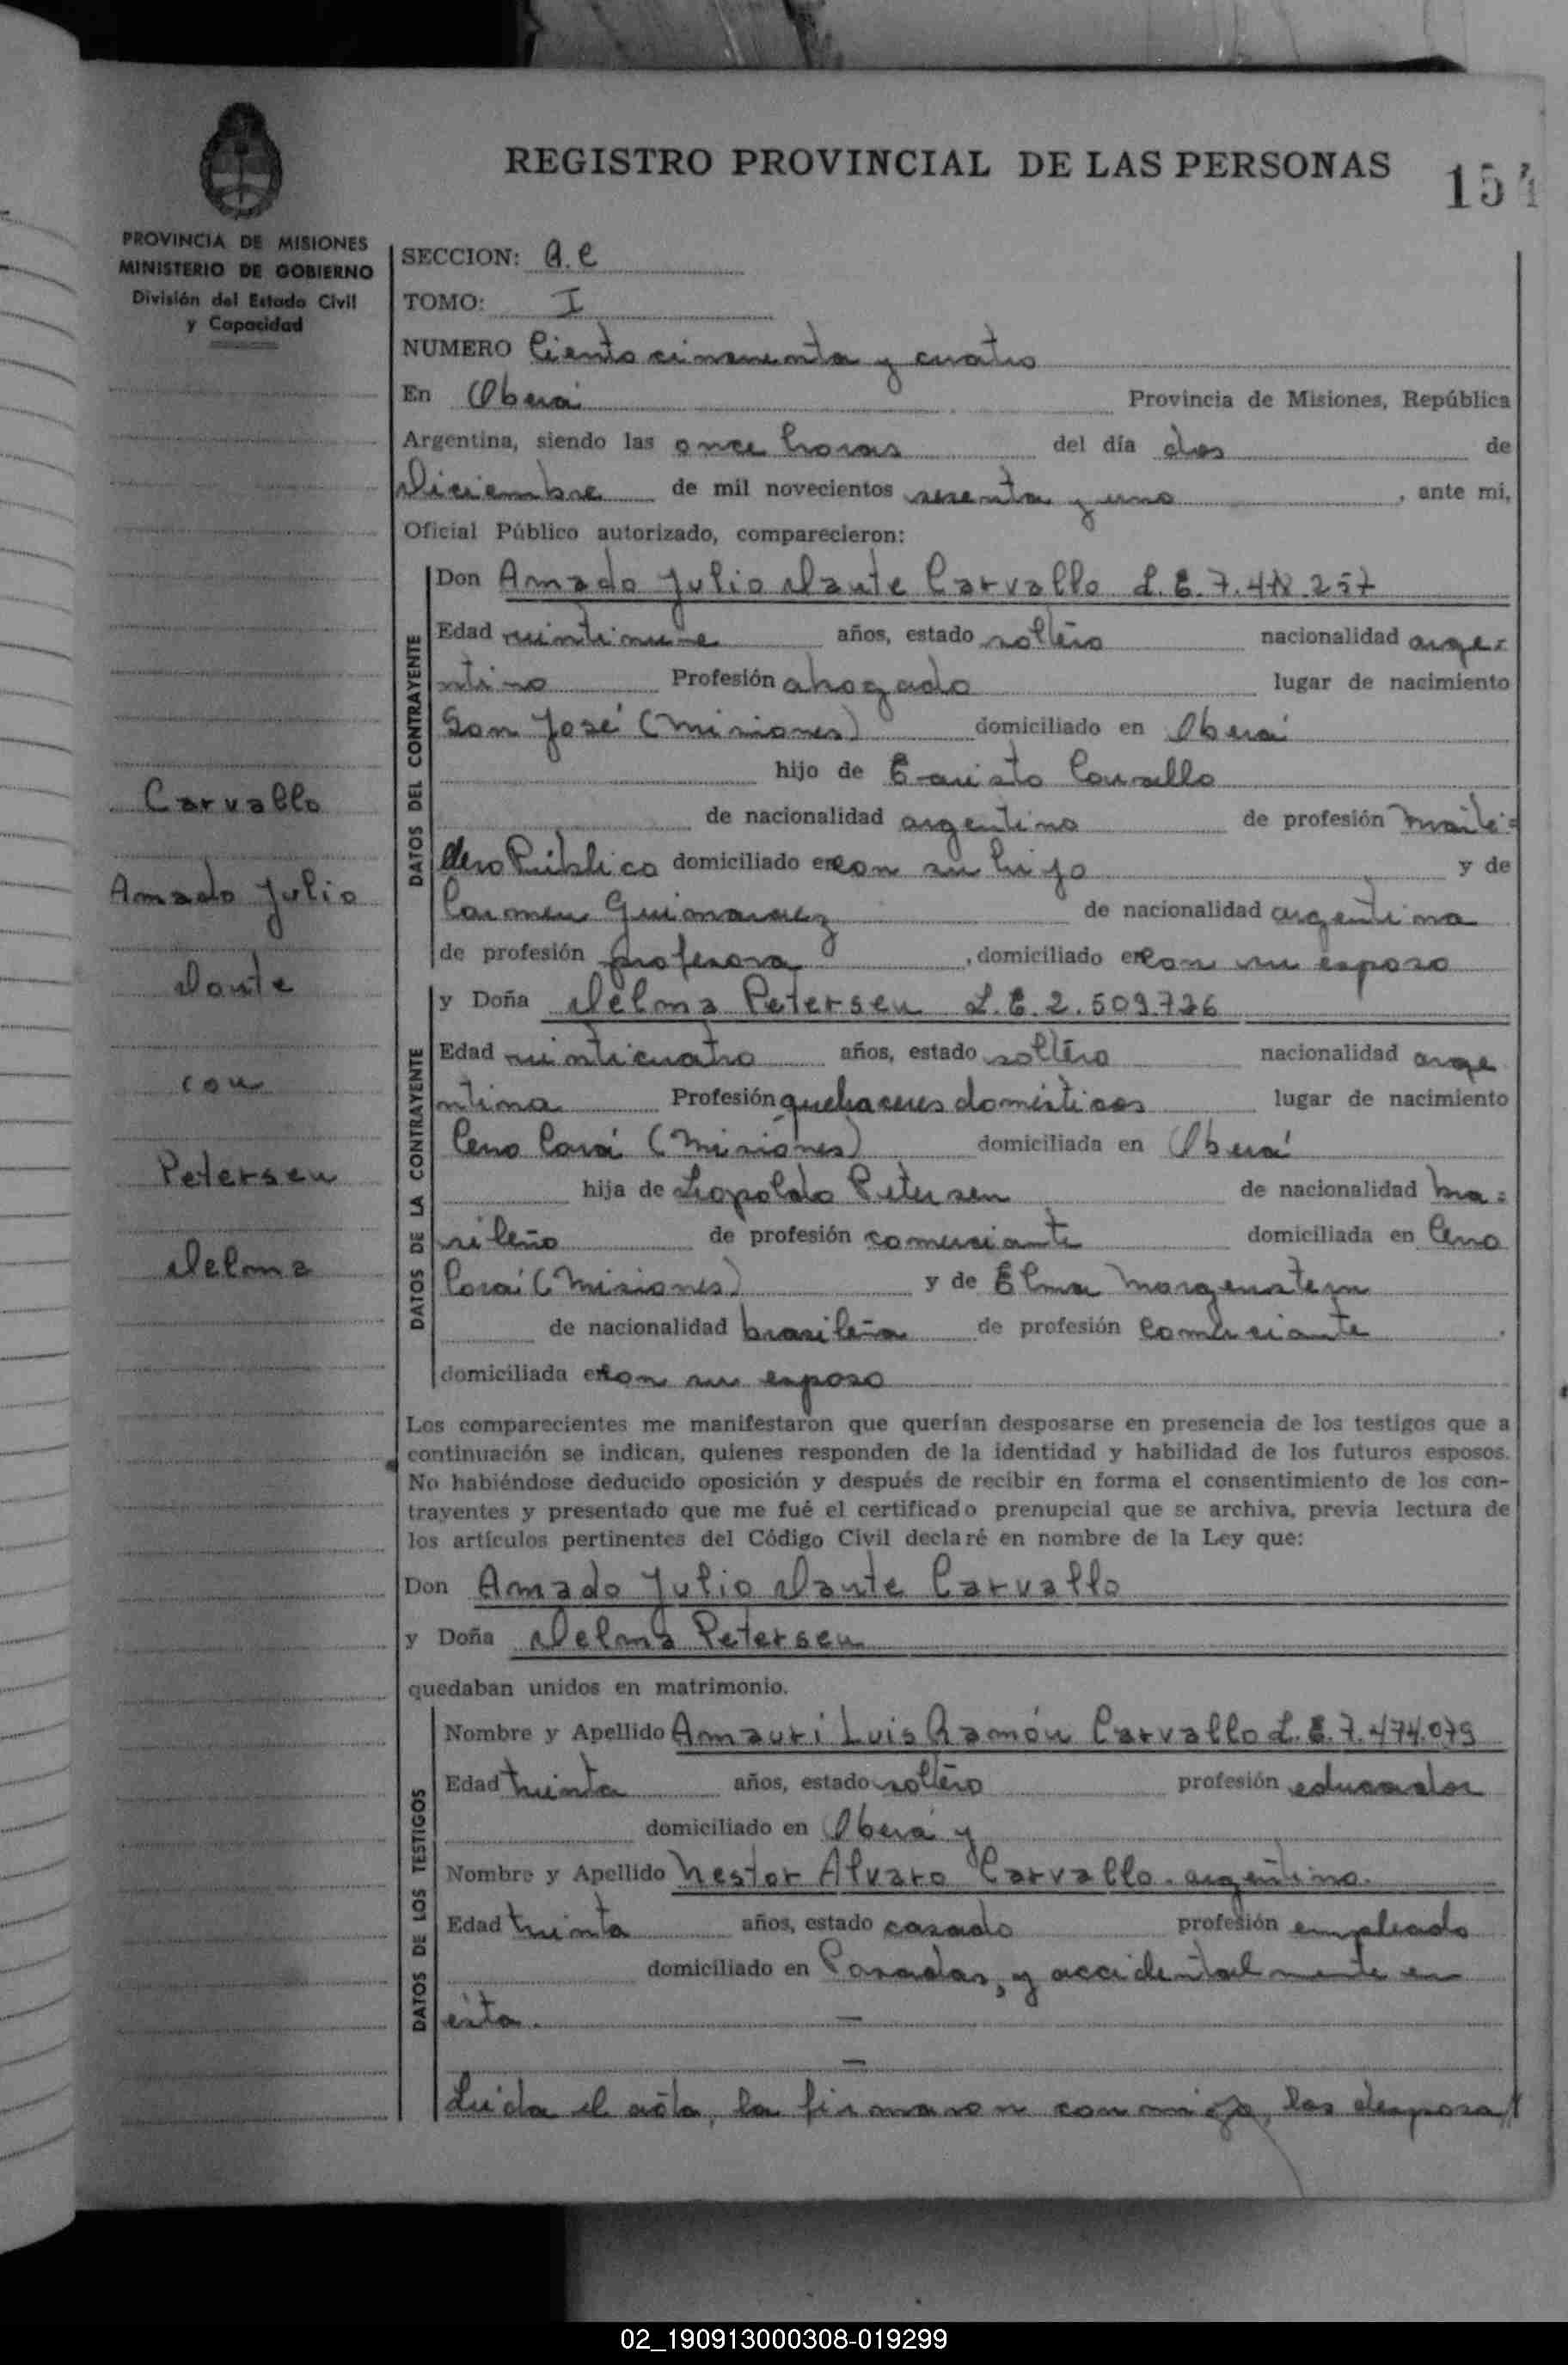 REGISTRO PROVINCIAL DE LAS PERSONAS
154
PROVINCIA DE MISIONES
MINISTERIO DE GOBIERNO
División del Estado Civil
y Capacidad
SECCION: A.C
TOMO: I
NUMERO Ciento cincuenta y cuatro
En Oberá Provincia de Misiones, República
Argentina, siendo las once horas del día dos de
Diciembre de mil novecientos sesenta y uno, ante mi,
Oficial Público autorizado, comparecieron:
DATOS DEL CONTRAYENTE
Don Amado Julio Dante Carvallo L.E.7.478.257
Edad veintinueve años, estado soltero nacionalidad arge-
ntino Profesión abogado lugar de nacimiento
San José (Misiones) domiciliado en Oberá
hijo de Evaristo Carvallo
de nacionalidad argentino de profesión Marti-
llero Público domiciliado en con su hijo y de
Carmen de nacionalidad argentina
de profesión profesora, domiciliado en con su esposo
DATOS DE LA CONTRAYENTE
y Doña Delma Petersen L.E.2.509.726
Edad veinticuatro años, estado soltera nacionalidad arge
ntina Profesión quehaceres domésticos lugar de nacimiento
Cerro Corá (Misiones) domiciliada en Oberá
hija de Leopoldo Petersen de nacionalidad bra-
sileño de profesión comerciante domiciliada en Cerro
Corá (Misiones) y de Elma Morgenstern
de nacionalidad brasileña de profesión comerciante
domiciliada en con su esposo
Los comparecientes me manifestaron que querían desposarse en presencia de los testigos que a
continuación se indican, quienes responden de la identidad y habilidad de los futuros esposos.
No habiéndose deducido oposición y después de recibir en forma el consentimiento de los con-
trayentes y presentado que me fué el certificado prenupcial que se archiva, previa lectura de
los artículos pertinentes del Código Civil declaré en nombre de la Ley que:
Don Amado Julio Dante Carvallo
y Doña Delma Petersen
quedaban unidos en matrimonio.
DATOS DE LOS TESTIGOS
Nombre y Apellido Amauri Luis Ramón Carvallo L.E.7.474.079
Edad treinta años, estado soltero profesión educador
domiciliado en Oberá y
Nombre y Apellido Nestor Alvaro Carvallo. argentino.
Edad treinta años, estado casado profesión empleado
domiciliado en Posadas, y accidentalmente en
ésta. —
—
Leída el acta, la firmaron conmigo, los desposa
Carvallo
Amado Julio
Dante
con
Petersen
Delma
02_190913000308-019299